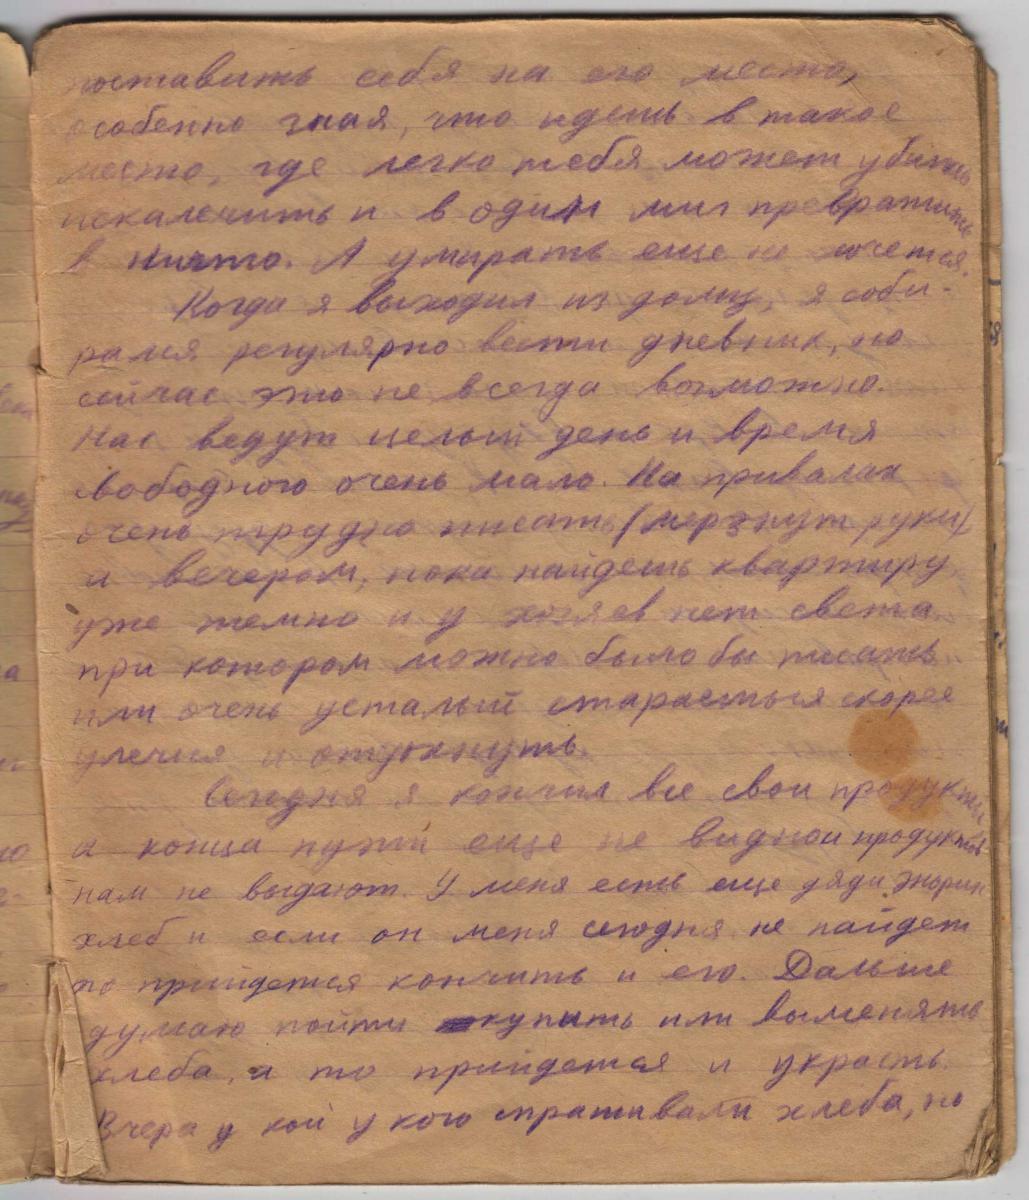 поставить себя на его место,
особенно зная, что идешь в такое
место, где легко тебя может убить
искалечить и в один миг превратить
в ничто. А умирать еще не хочется.
Когда я выходил из дому, я соби-
рался регулярно вести дневник, но
сейчас это не всегда возможно.
Нас ведут целый день и время
свободного очень мало. На привалах
очень трудно писать (мерзнут руки)
а вечером, пока найдешь квартиру
уже темно и у хозяев нет света
при котором можно было бы писать
или очень усталый стараешься скорее
улечся и отдохнуть.
Сегодня я кончил все свои продукты
а конца пути еще не видно и продуктов
нам не выдают. У меня есть еще дяди
хлеб и если он меня сегодня не найдет
то прийдется кончить и его. Дальше
думаю пойти купить или выменять
хлеба, а то прийдется и украсть.
Вчера у кой у кого спрашивали хлеба, но